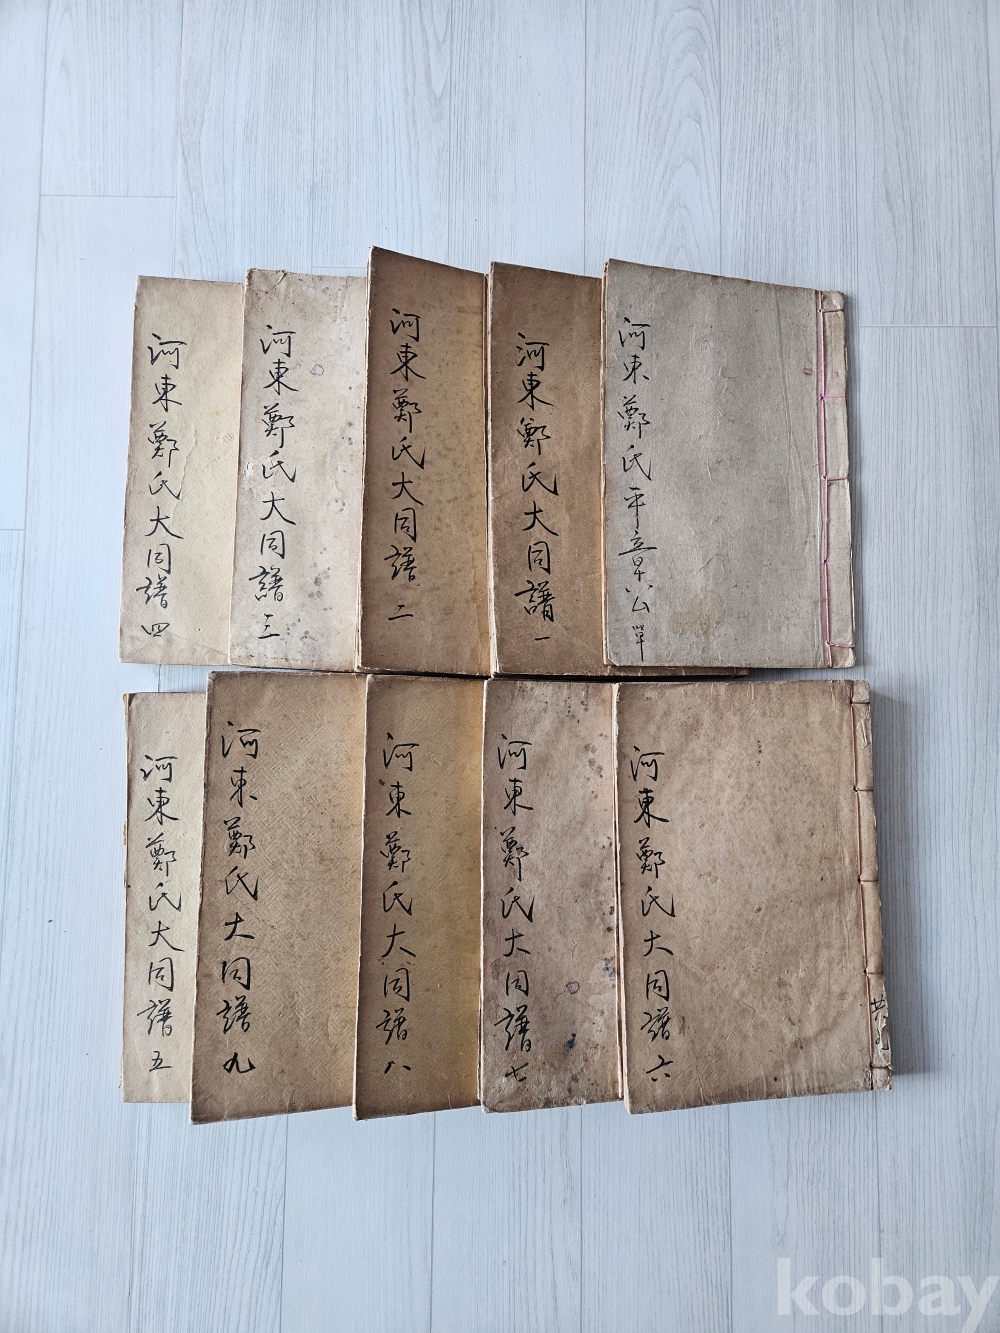 河東鄭氏平章公單
河東鄭氏大同譜一
河東鄭氏大同譜二
河東鄭氏大同譜三
河東鄭氏大同譜四
河東鄭氏大同譜六
共九
河東鄭氏大同譜七
河東鄭氏大同譜八
河東鄭氏大同譜九
河東鄭氏大同譜五
kobay